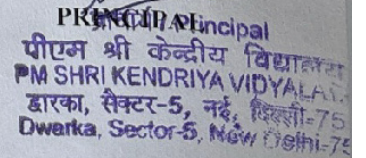 PRINCIPAL
Principal
पीएम श्री केन्द्रीय विद्यालय
PM SHRI KENDRIYA VIDYALA
द्वारका, सैक्टर-5, नई, दिल्ली-75
Dwarka, Sector-5, New Delhi-75